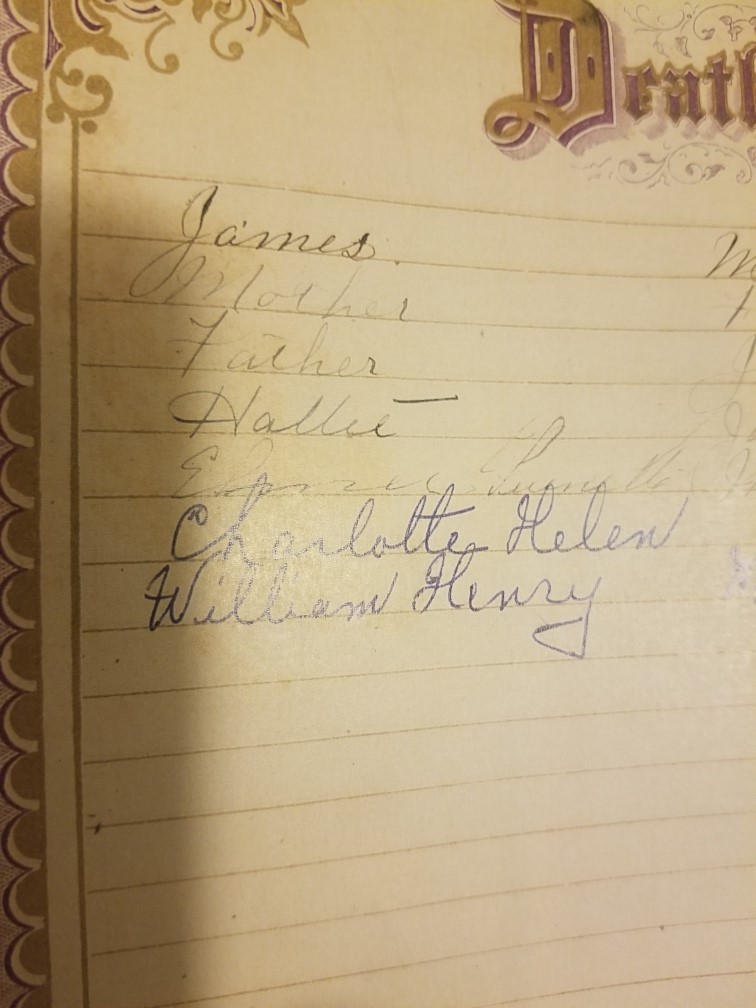 Death
James. M
Mother
Father
Hallie —
Charlotte Helen
William Henry